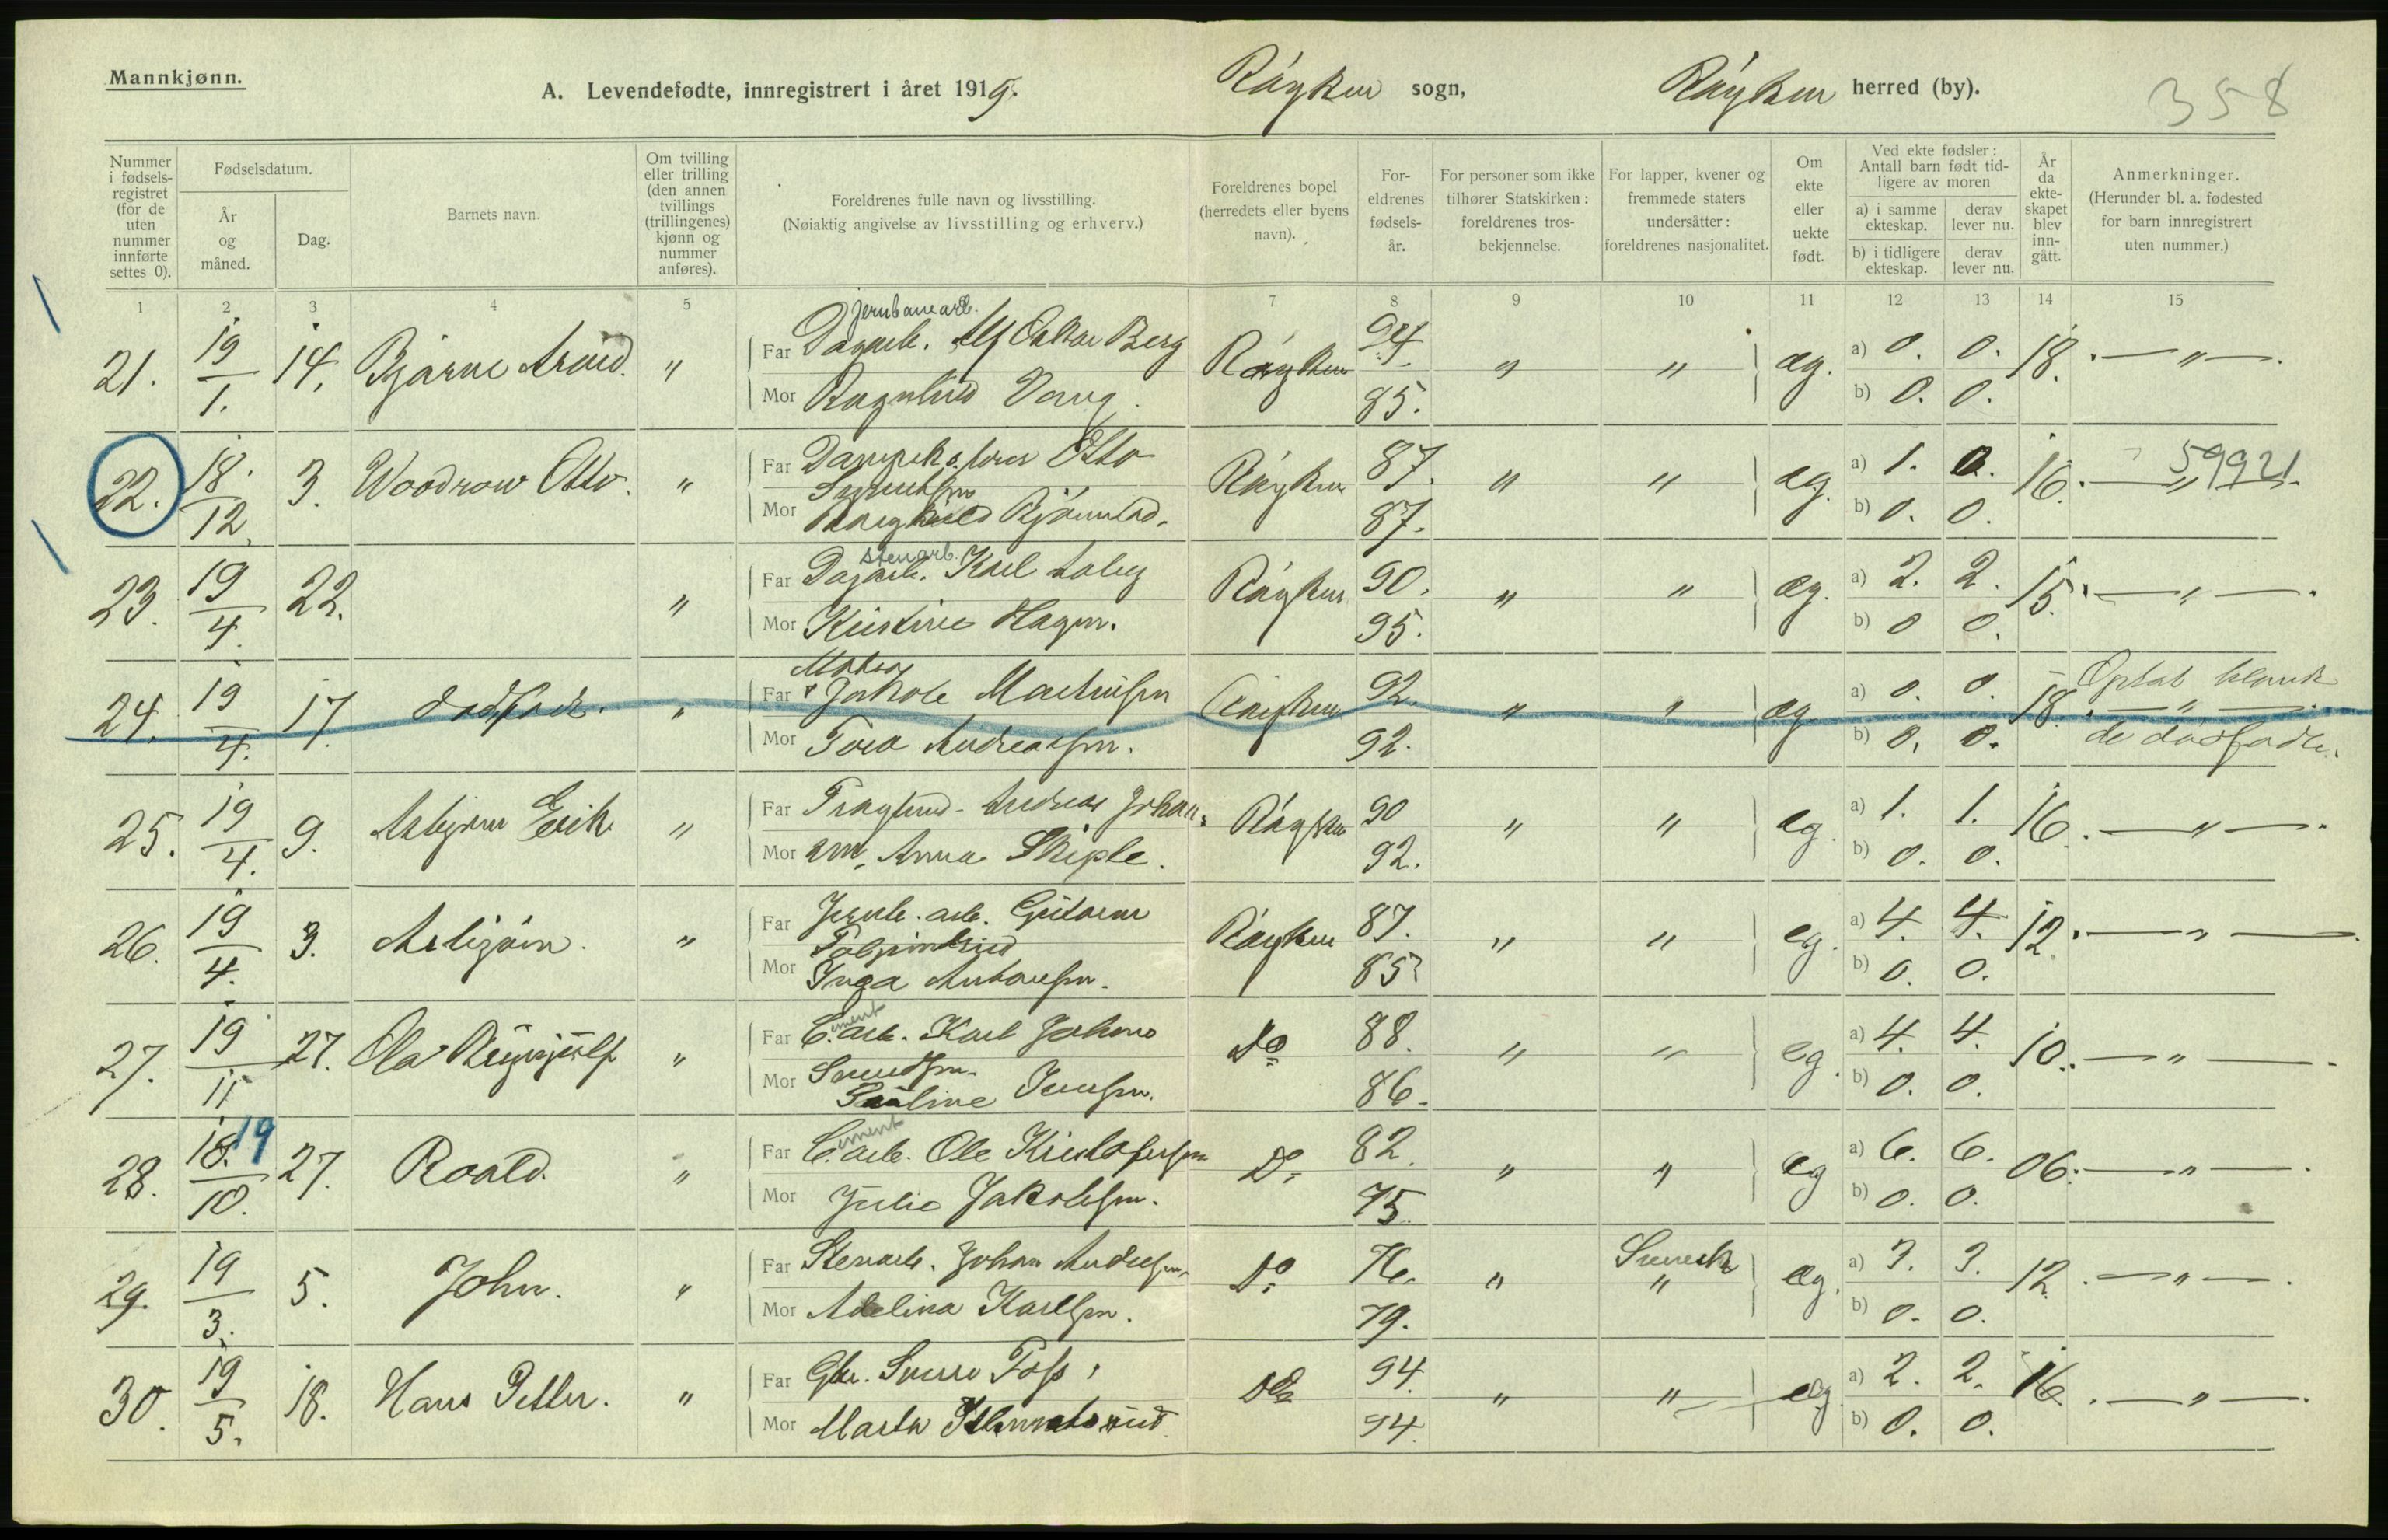 Mannkjønn.
A. Levendefødte, innregistrert i året 1919.
Røyken sogn,
Røyken herred (by).
358
Nummer i fødsels-registret (for de uten nummer innførte settes 0).
Fødselsdatum.
År og måned.
Dag.
Barnets navn.
Om tvilling eller trilling (den annen tvillings (trillingenes) kjønn og nummer anføres).
Foreldrenes fulle navn og livsstilling.
(Nøiaktig angivelse av livsstilling og erhverv.)
Foreldrenes bopel (herredets eller byens navn).
For-eldrenes fødsels-år.
For personer som ikke tilhører Statskirken: foreldrenes tros-bekjennelse.
For lapper, kvener og fremmede staters undersåtter: foreldrenes nasjonalitet.
Om ekte eller uekte født.
Ved ekte fødsler: Antall barn født tid-ligere av moren
a) i samme ekteskap.
derav lever nu.
b) i tidligere ekteskap.
derav lever nu.
År da ekte-skapet blev inn-gått.
Anmerkninger.
(Herunder bl. a. fødested for barn innregistrert uten nummer.)
1 2 3 4 5 7 8 9 10 11 12 13 14 15
jernbanearb.
21. 19/1. 14. Bjarne Arvid. " Far Dagarb. Alf Oskar Berg Røyken 94. " " æg. a) 0. 0. 18. — " —.
Mor Ragnhild Vang. 85. b) 0. 0.
22. 18./12. 3. Woodrow Otto. " Far Otto Røyken 87. " " æg. a) 1. 0. 16. — " — 59921
Mor 87. b) 0. 0.
stenarb.
23. 19/4. 22. " Far Dagarb. Karl Røyken 90. " " æg. a) 2. 2. 15. — " —.
Mor Kristine Hagen. 95. b) 0 0.
24. 19/4. 17. dødfødt. " Far Jakob Martinsen Røyken 92. " " æg. a) 0. 0. 18. — " —. Optat blandt
Mor Tora Andreassen. 92. b) 0. 0. de dødfødte.
25. 19/4. 9. Asbjørn Erik " Far Andreas Johan- Røyken 90 " " æg. a) 1. 1. 16. — " —.
Mor sen, Anna Skiple. 92. b) 0. 0.
26. 19/4. 3. Asbjørn. " Far Jernb. arb. Røyken 87. " " æg. a) 4. 4. 12. — " —.
Mor Inga Antonsen. 85 b) 0. 0.
ement
27. 19/11 27. Ola " Far C. arb. Karl Johan Do 88. " " æg. a) 4. 4. 10. — " —.
Mor Pauline Jensen. 86. b) 0. 0.
ement
28. 18. 19/10. 27. Roald. " Far C. arb. Ole Kristofersen Do 82. " " æg a) 6. 6. 06. — " —.
Mor Julie Jakobsen. 75. b) 0. 0.
29. 19/3. 5. John. " Far Stenarb. Johan Andersen. Do 76. " Svensk " æg. a) 3. 3. 12. — " —.
Mor Adelina Karlsen. 79. b) 0. 0.
30. 19/5. 18. Hans Petter. " Far Gbr. Sverre Foss. Do 94. " " æg. a) 2. 2. 16. — " —.
Mor Marta 94. b) 0. 0.